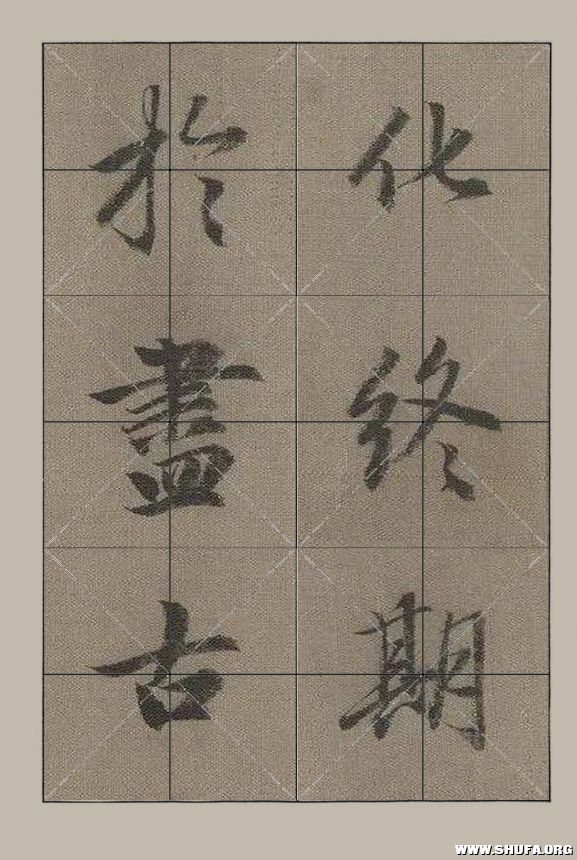 化終期
於盡古
WWW.SHUFA.ORG